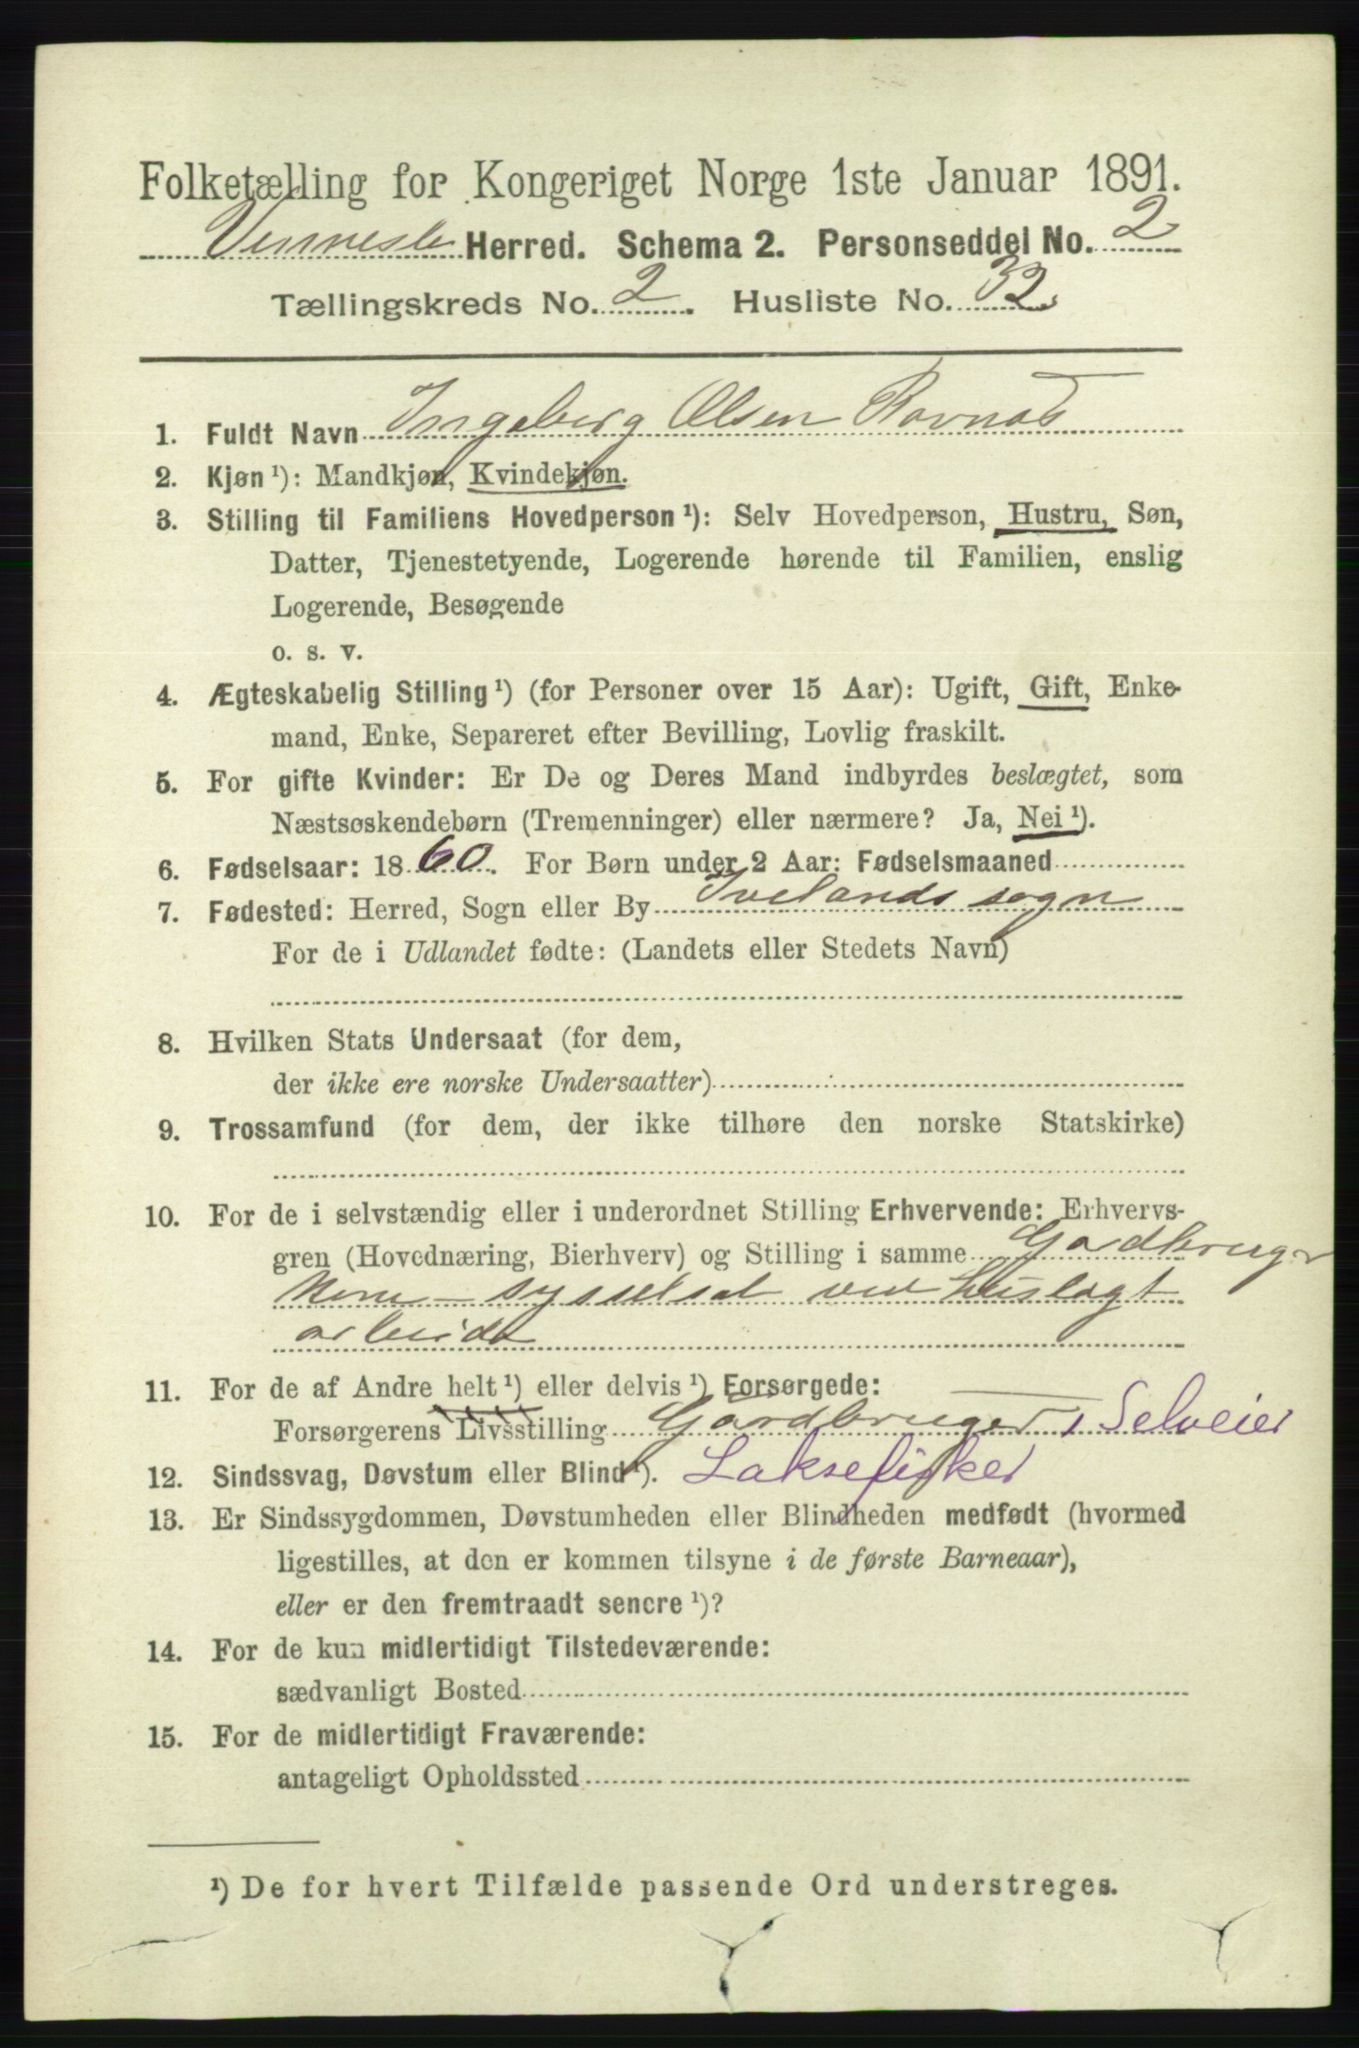 Folketælling for Kongeriget Norge 1ste Januar 1891.
Vennesla Herred. Schema 2. Personseddel No. 2
Tællingskreds No. 2. Husliste No. 32
1. Fuldt Navn Ingeborg Olsen Ravnås
2. Kjøn ¹): Mandkjøn, Kvindekjøn.
3. Stilling til Familiens Hovedperson ¹): Selv Hovedperson, Hustru, Søn,
Datter, Tjenestetyende, Logerende hørende til Familien, enslig
Logerende, Besøgende
o. s. v.
4. Ægteskabelig Stilling ¹) (for Personer over 15 Aar): Ugift, Gift, Enke-
mand, Enke, Separeret efter Bevilling, Lovlig fraskilt.
5. For gifte Kvinder: Er De og Deres Mand indbyrdes beslægtet, som
Næstsøskendebørn (Tremenninger) eller nærmere? Ja, Nei ¹).
6. Fødselsaar: 1860. For Børn under 2 Aar: Fødselsmaaned
7. Fødested: Herred, Sogn eller By Ivelands sogn
For de i Udlandet fødte: (Landets eller Stedets Navn)
8. Hvilken Stats Undersaat (for dem,
der ikke ere norske Undersaatter)
9. Trossamfund (for dem, der ikke tilhøre den norske Statskirke)
10. For de i selvstændig eller i underordnet Stilling Erhvervende: Erhvervs-
gren (Hovednæring, Bierhverv) og Stilling i samme Gardbruger
kone - sysselsat ved huslagt
arbeide
11. For de af Andre helt ¹) eller delvis ¹) Forsørgede:
Forsørgerens Livsstilling Gårdbruger, Selveier
12. Sindssvag, Døvstum eller Blind ¹). Laksefisker
13. Er Sindssygdommen, Døvstumheden eller Blindheden medfødt (hvormed
ligestilles, at den er kommen tilsyne i de første Barneaar),
eller er den fremtraadt senere ¹)?
14. For de kun midlertidigt Tilstedeværende:
sædvanligt Bosted
15. For de midlertidigt Fraværende:
antageligt Opholdssted
¹) De for hvert Tilfælde passende Ord understreges.